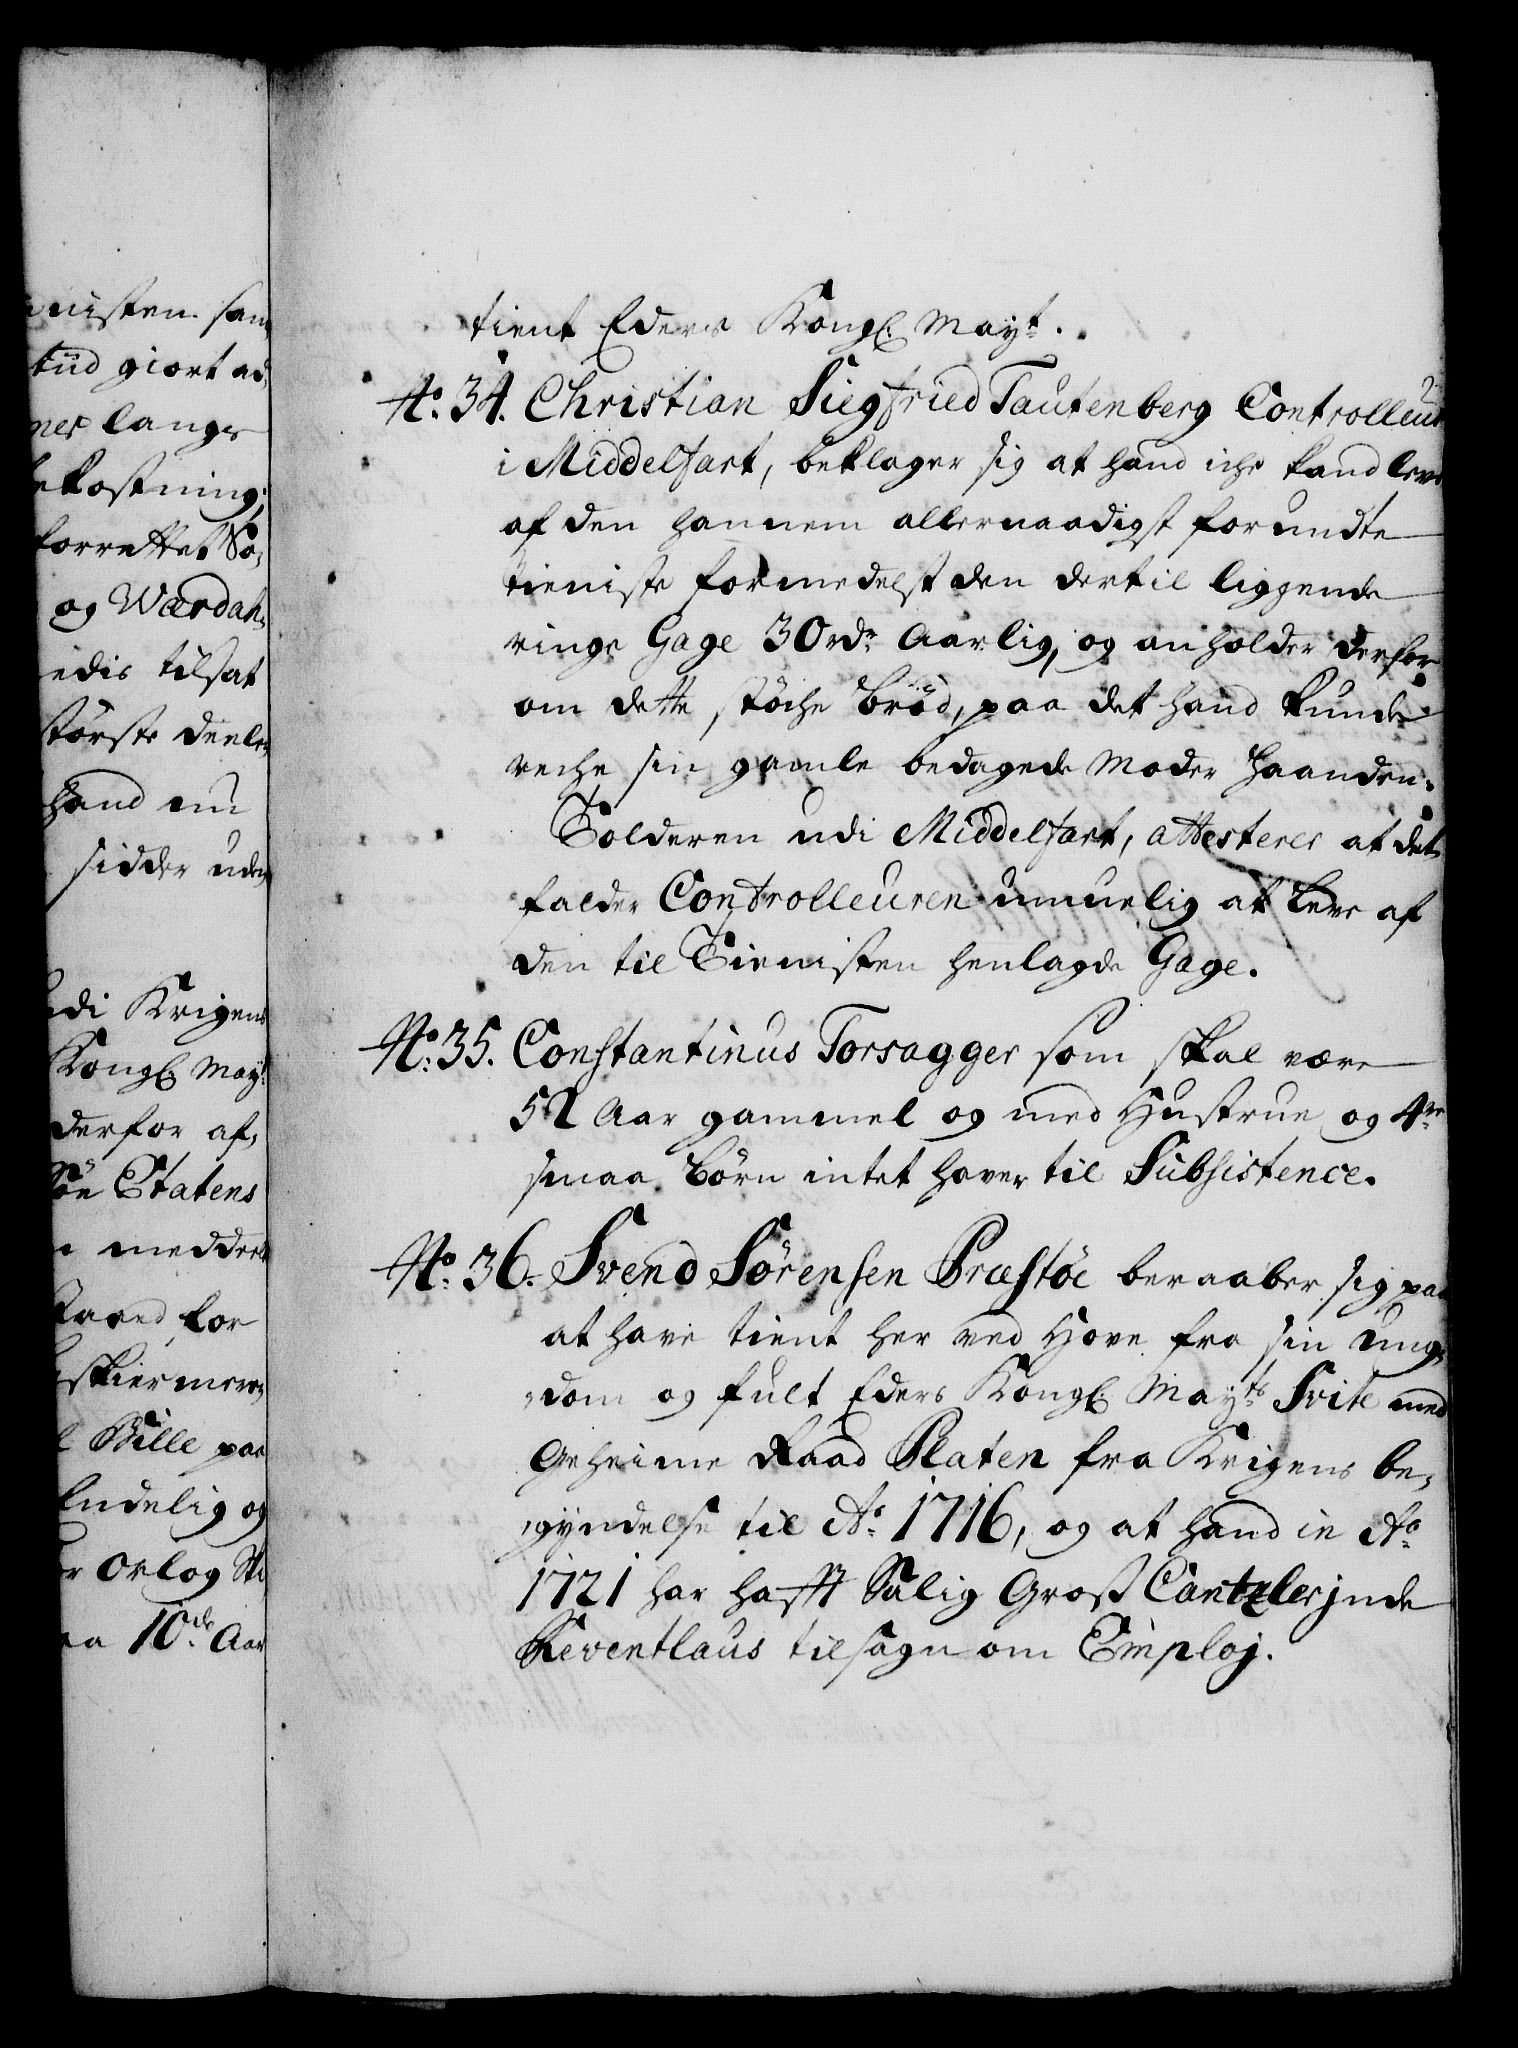 nisten sam,
tiid giort ad,
ner lange
ekostning,
forrettet Sø,
og Wardah,
edis tilsat
største deele,
hand nu
sidder uden
udi Krigens
Kongl. May.t
derfor af,
Søe Etatens
n meddeel
for
skiermere,
l Bille paa
Endelig og
r Orlog Ski
aa 10.de Aar
tient Eders Kongl. May.t.
No. 34. Christian Siegfried Tautenberg Controlleur
i Middelfart, beklager sig at hand iche kand leve
af den hannem allernaadigst forundte
tieniste formedelst den dertil liggende
ringe Gage 30 rdr. Aarlig, og anholder derfor
om dette støche brød, paa det hand kunde
reche sin gamle bedagede Moder haanden.
Tolderen udi Middelfart, attesterer at det
falder Controlleuren umuelig at leve af
den til Tienisten henlagde Gage.
No. 35. Constantinus Torsagger som skal være
52 Aar gammel og med Hustrue og 4re
smaa børn intet haver til Subsistence.
No. 36. Svend Sørensen Præstøe beraaber sig paa
at have tient her ved Hove fra sin ung,
,dom og fult Eders Kongl. May.ts Svite med
Geheime Raad Platen fra Krigens be,
,gyndelse til Ao. 1716, og at hand in Ao.
1721 har hafft Salig Gross Cantzler
Reventlaus tilsagn om Emploj.